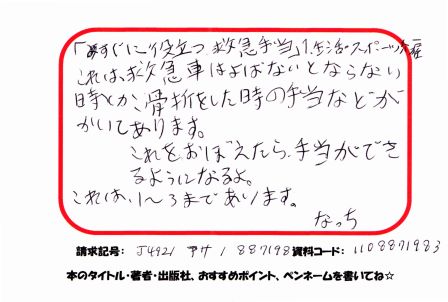 「めすぐに役立つ救急手当」1.生活・スポーツ
これは、救急車はよばないとならない
時とか、骨折をした時の手当などが
かいてあります。
これをおぼえたら、手当ができ
るようになるよ。
これは、1〜3まであります。
なっち
請求記号: J4921 アサ 1 887198 資料コード: 1108871983
本のタイトル・著者・出版社、おすすめポイント、ペンネームを書いてね☆